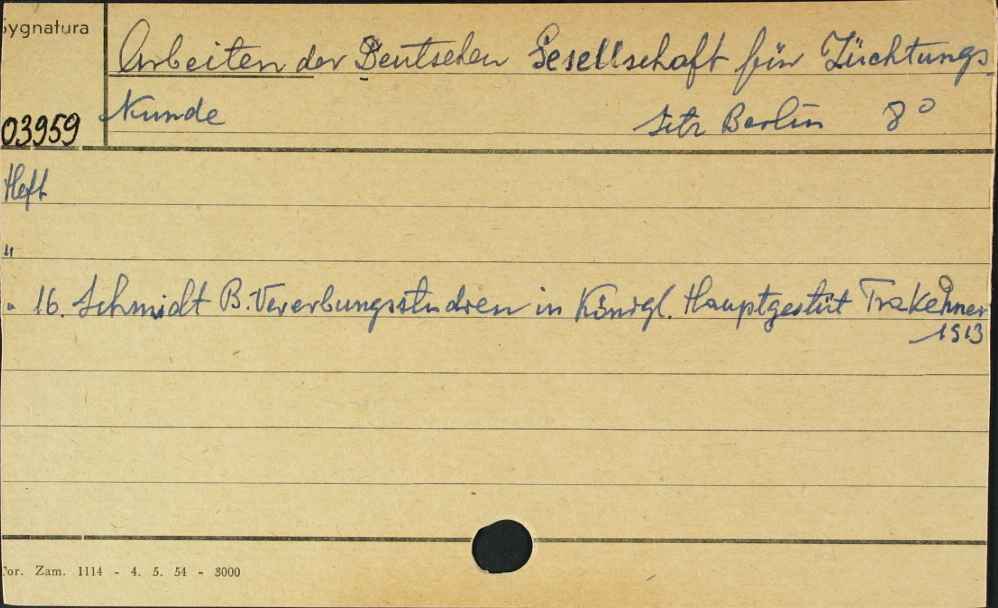 Sygnatura
Arbeiten der Deutschen Gesellschaft für Züchtungs
Kunde Sitz Berlin 8°
03959
Heft
"
" 16. Schmidt B. Vererbungsstudien in Königl. Hauptgestüt Trakehner
1913
Tor. Zam. 1114 - 4. 5. 54 - 3000